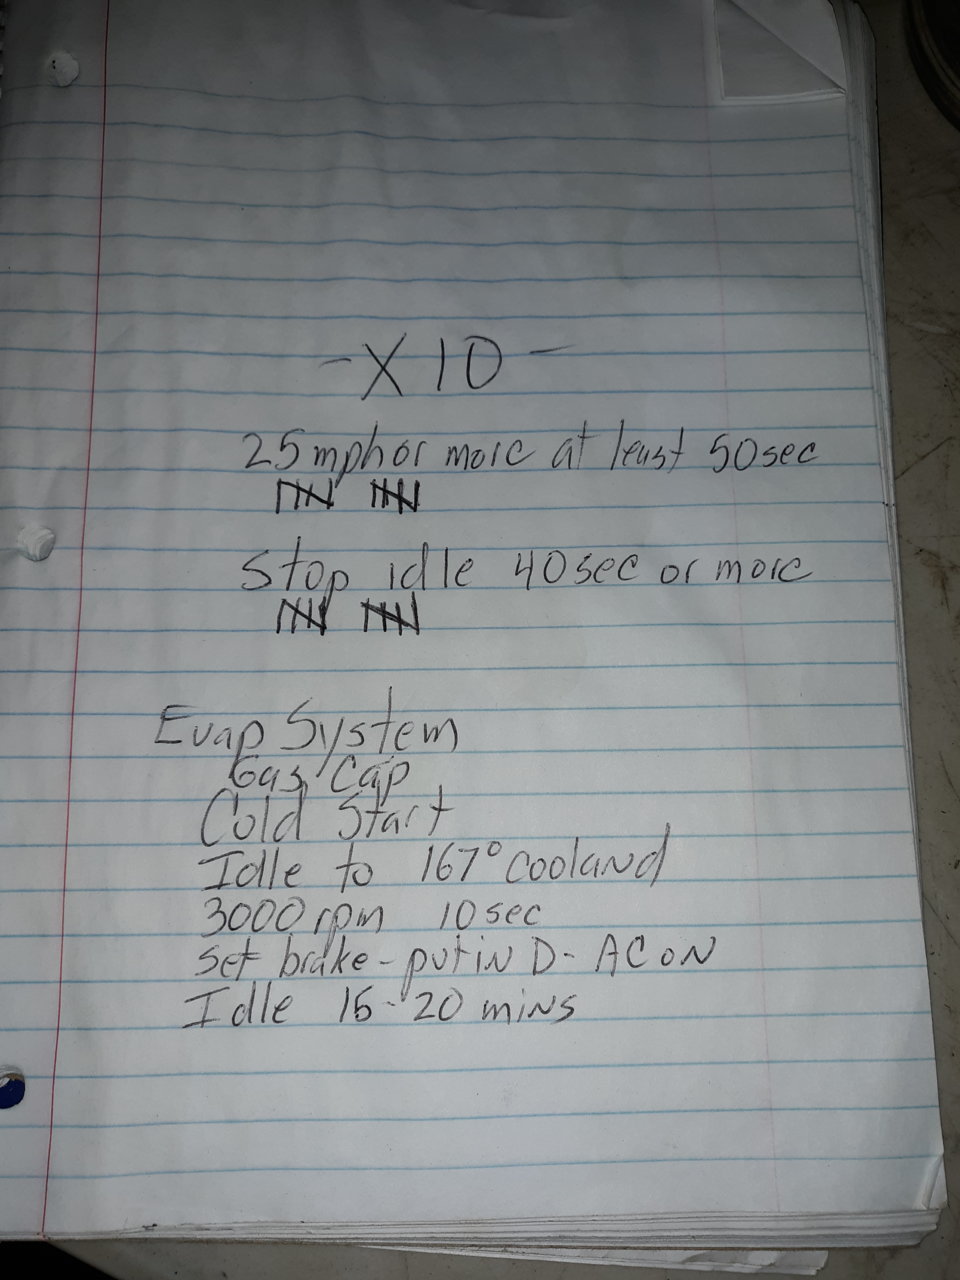 - X 10 -
25mph or more at least 50sec
Stop idle 40sec or more
Evap System
Gas Cap
Cold Start
Idle to 167° cooland
3000 rpm 10 sec
Set brake - put in D - AC ON
Idle 15-20 mins